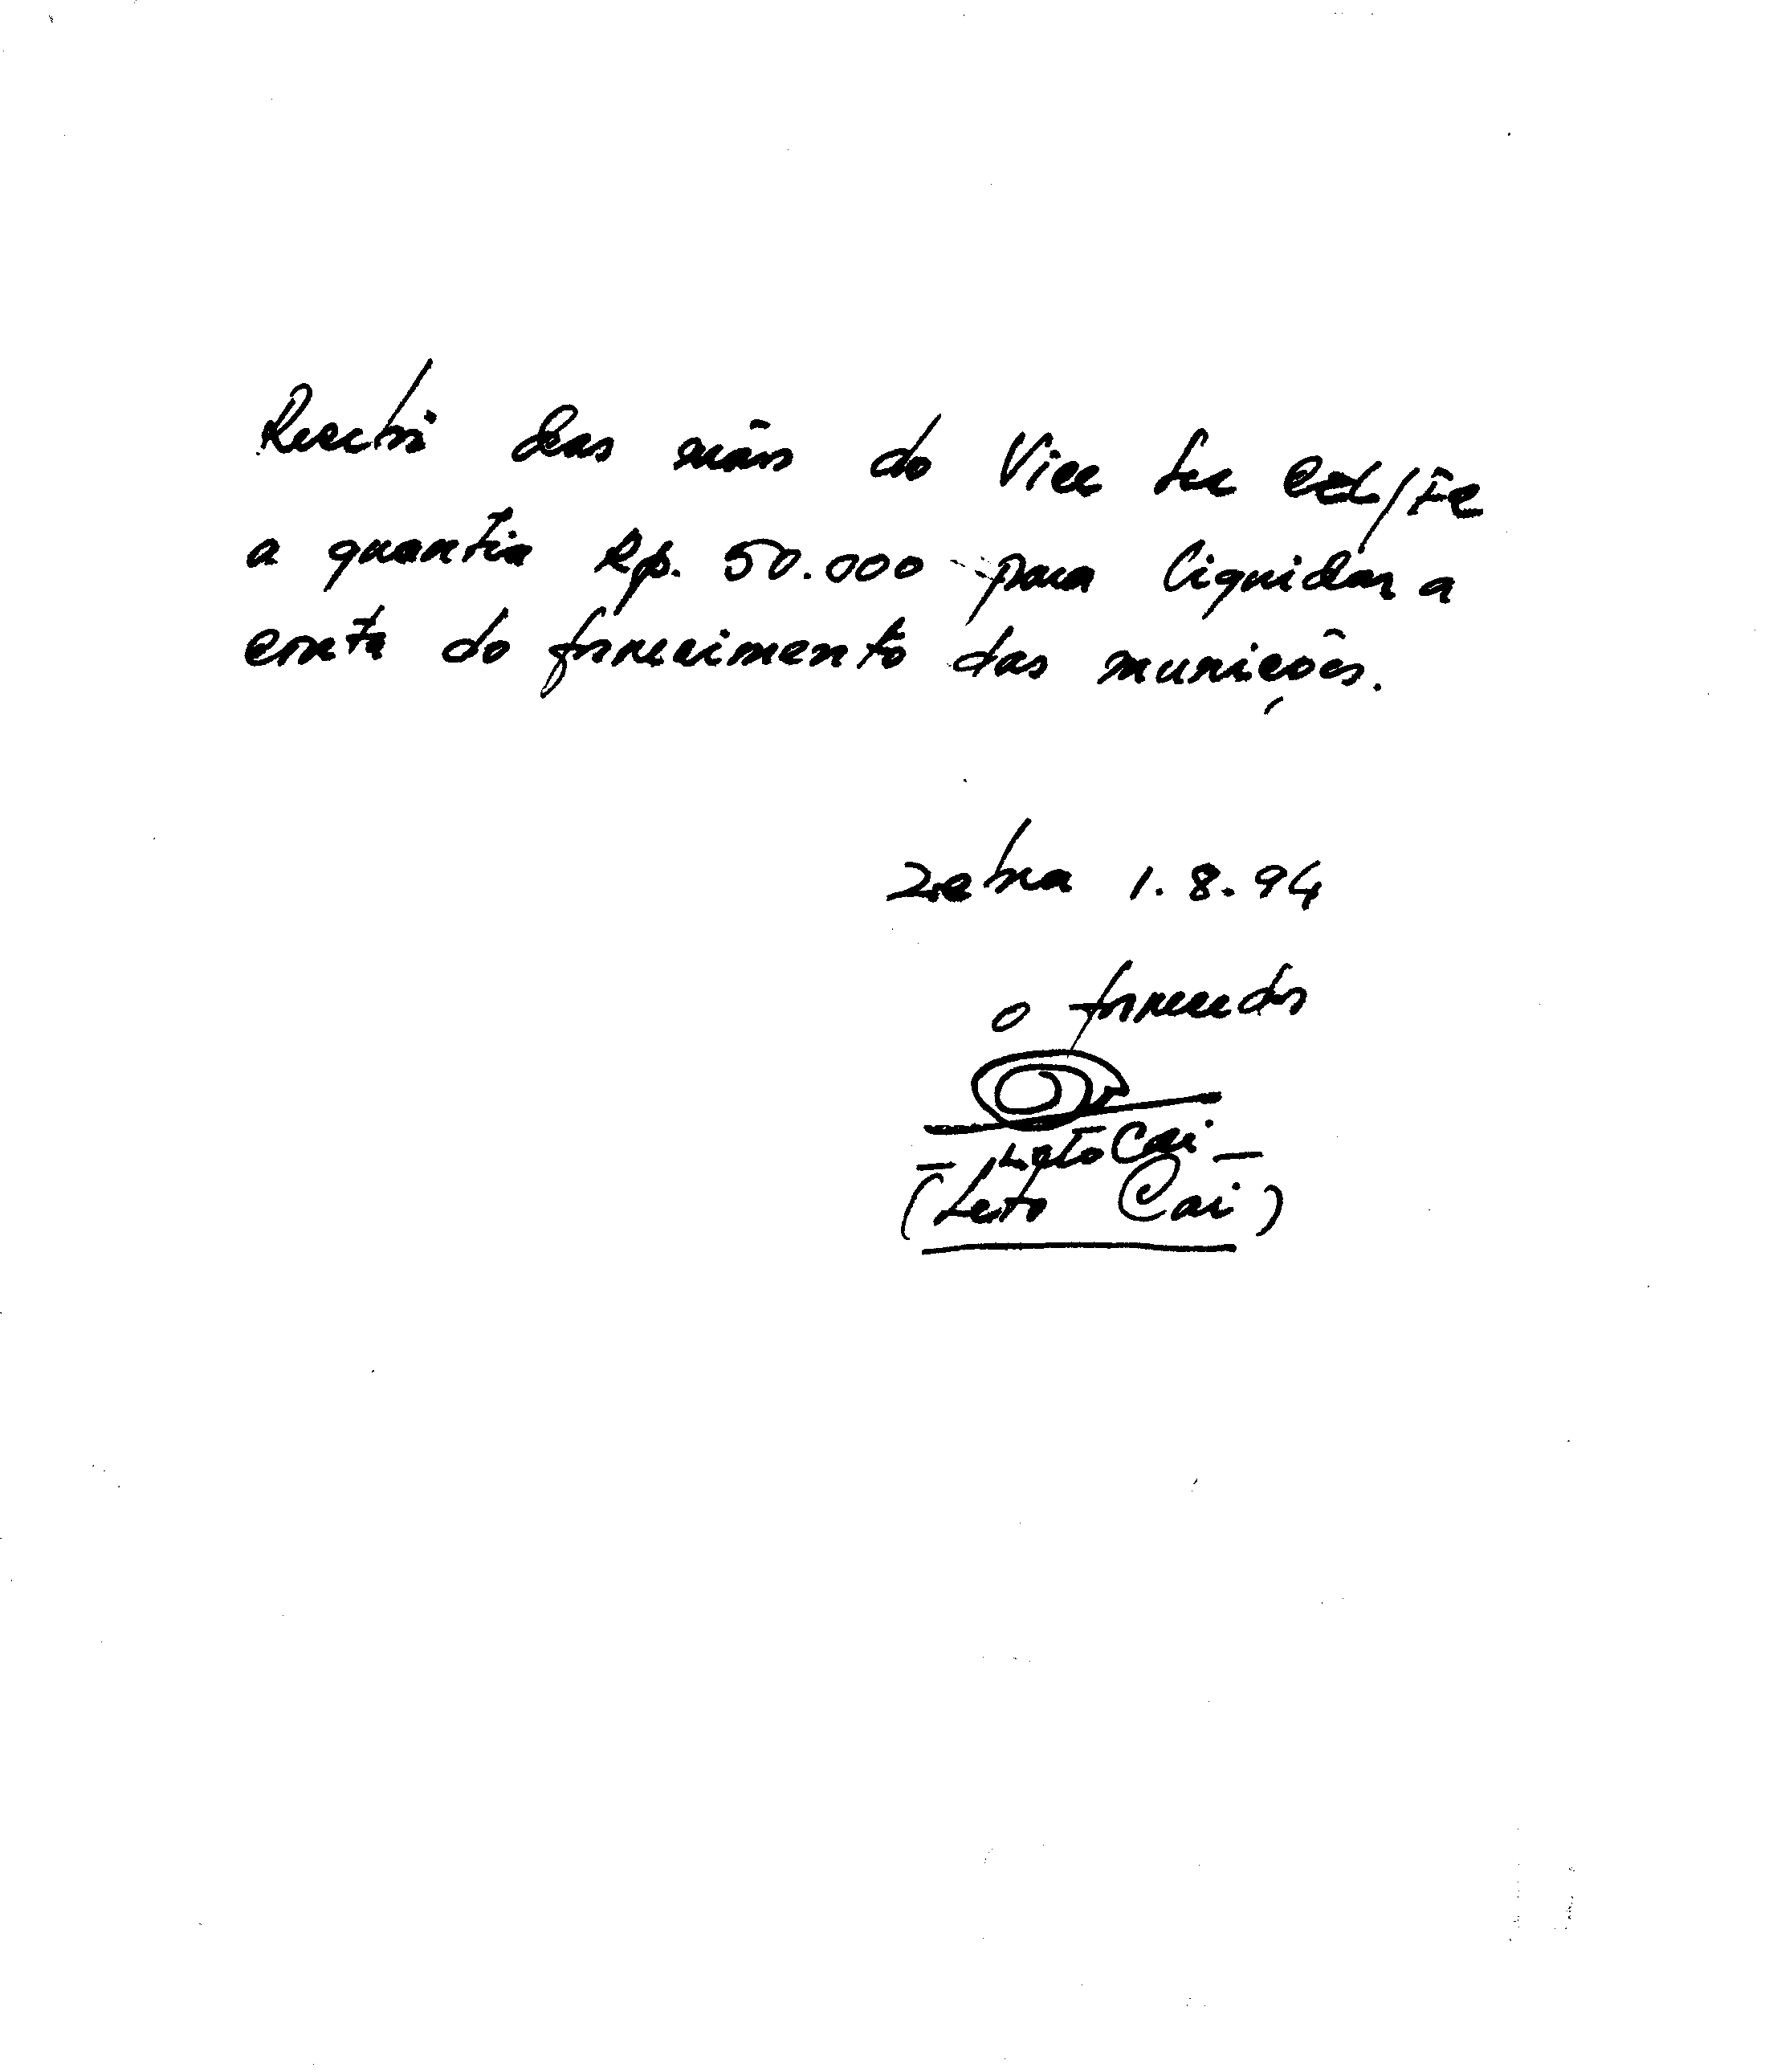 Recebi das mãos do Vice Sec CEL/FC
a quantia Rp. 50.000 para liquidar a
conta do fornecimento das munições.
Zebra 1.8.94
o fornecedor
Leto Cai
(Leto Cai)